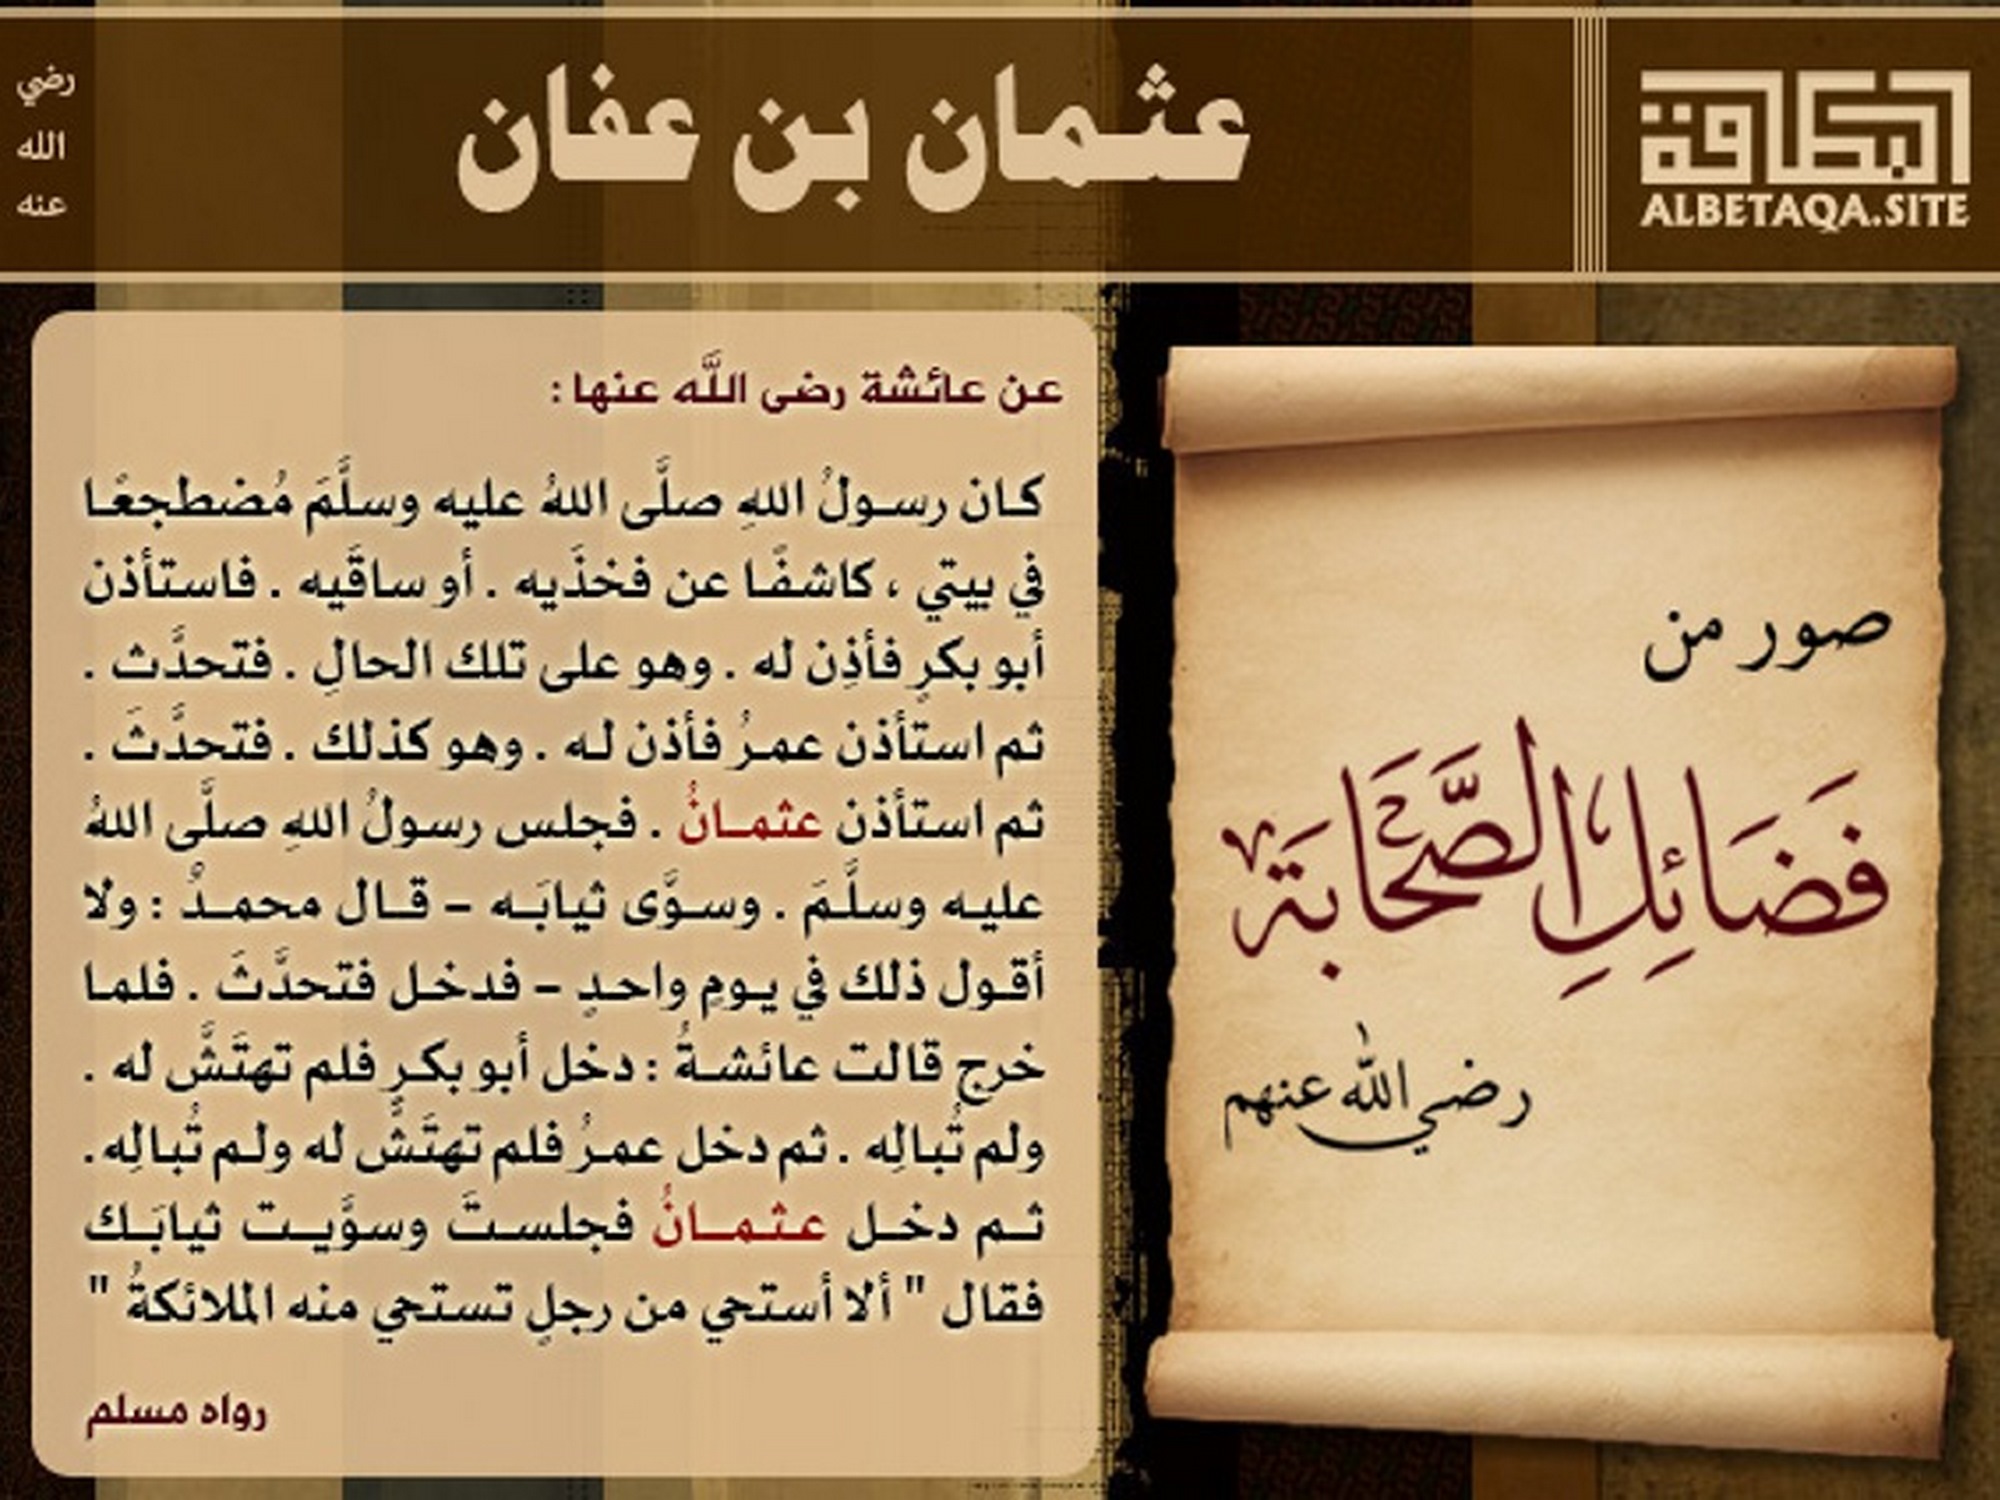 البطاقة
ALBETAQA.SITE
عثمان بن عفان
رضي
الله
عنه
صور من
فَضَائِلِ الصَّحَابَةِ
رضي الله عنهم
عن عائشة رضى اللَّه عنها :
كان رسولُ اللهِ صلَّى اللهُ عليه وسلَّمَ مُضطجعًا
في بيتي ، كاشفًا عن فخذَيه . أو ساقَيه . فاستأذن
أبو بكرٍ فأذِن له . وهو على تلك الحالِ . فتحدَّث .
ثم استأذن عمرُ فأذن له . وهو كذلك . فتحدَّثَ .
ثم استأذن عثمانُ . فجلس رسولُ اللهِ صلَّى اللهُ
عليه وسلَّمَ . وسوَّى ثيابَه – قال محمدٌ : ولا
أقول ذلك في يومٍ واحدٍ – فدخل فتحدَّثَ . فلما
خرج قالت عائشةُ : دخل أبو بكرٍ فلم تهتَشَّ له .
ولم تُبالِه . ثم دخل عمرُ فلم تهتَشَّ له ولم تُبالِه .
ثم دخل عثمانُ فجلستَ وسوَّيت ثيابَك
فقال " ألا أستحي من رجلٍ تستحي منه الملائكةُ "
رواه مسلم